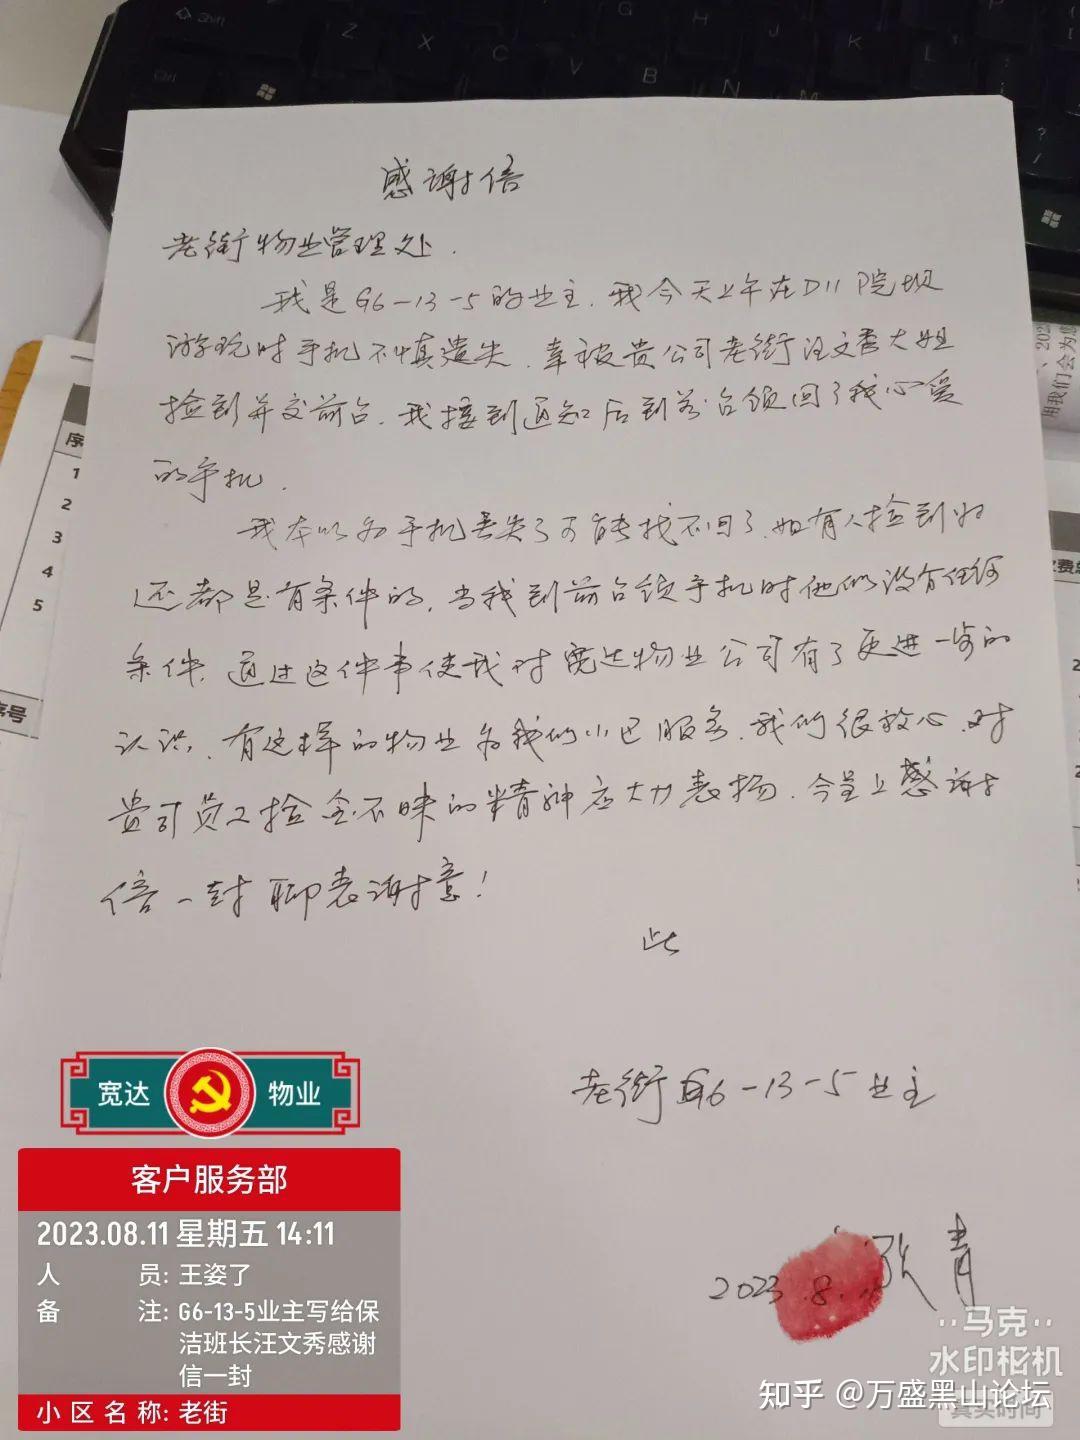 感谢信
老街物业管理处.
我是G6-13-5的业主.我今天上午在D11院坝
游玩时手机不慎遗失.幸被贵公司老街汪文秀大姐
捡到并交前台.我接到通知后到前台领回了我心爱
的手机.
我本以为手机丢失了可能找不回了.如有人捡到归
还都是有条件的.当我到前台领手机时他们没有任何
条件.通过这件事使我对宽达物业公司有了更进一步的
认识.有这样的物业为我们小区服务.我们很放心.对
贵司员工捡金不昧的精神应大力表扬.今呈上感谢
信一封聊表谢意!
此
老街G6-13-5业主
青
2023.8.
序
1
2
3
4
5
序号
宽达 物业
客户服务部
2023.08.11 星期五 14:11
人员: 王姿了
备注: G6-13-5业主写给保
洁班长汪文秀感谢
信一封
小区名称: 老街
马克
水印相机
知乎 @万盛黑山论坛
真实时间